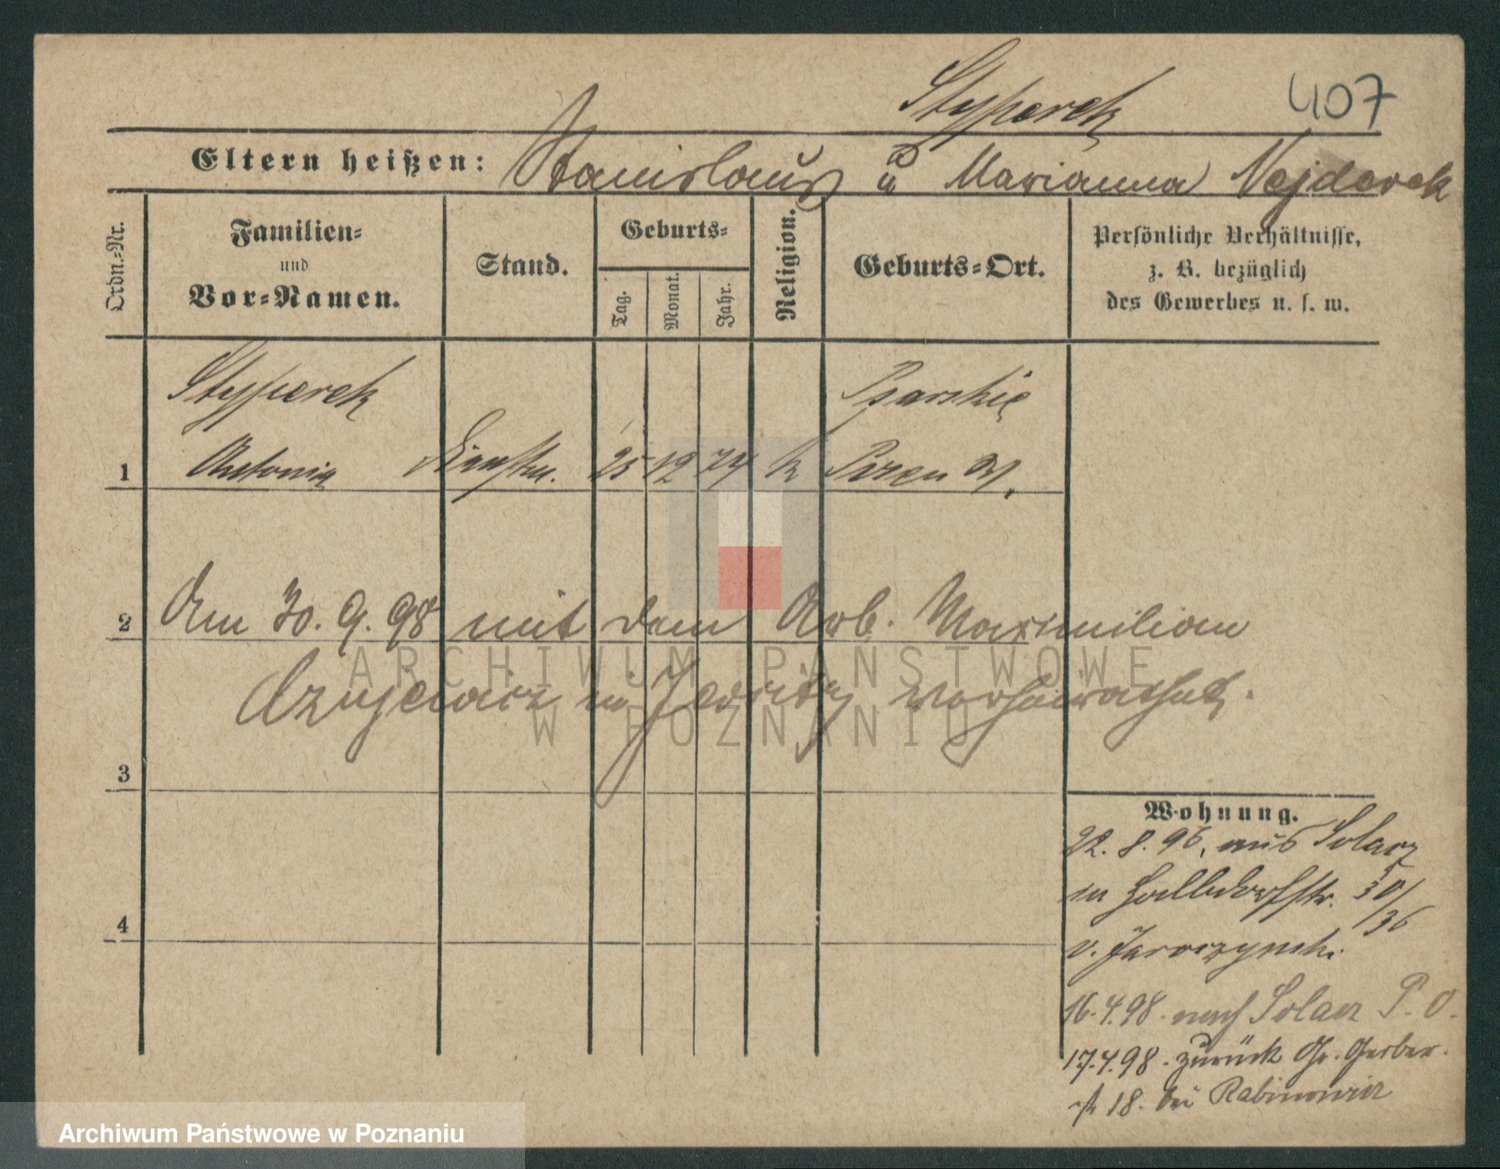 407
Styperek
Eltern heißen: Stanislaus u Marianna Nejderek
Ordn.-Nr.
Familien-
und
Vor-Namen.
Stand.
Geburts-
Tag.
Monat.
Jahr.
Religion.
Geburts-Ort.
Persönliche Verhältnisse,
z. B. bezüglich
des Gewerbes u. s. w.
Styperek Psarskie
1 Antonia 25 12 74 k
2 Am 30. 9. 98 mit dem Arb. Maximilian
in Jersitz verheirathet.
3
4
Wohnung.
22. 8. 96. aus Solacz
in Halbdorfstr. 30/36
v. Jaroczynski
16.4.98. nach Solacz P. O.
17.4.98. zurück Gr. Gerber-
str 18. bei Rabinowicz
ARCHIWUM PAŃSTWOWE
W POZNANIU
Archiwum Państwowe w Poznaniu